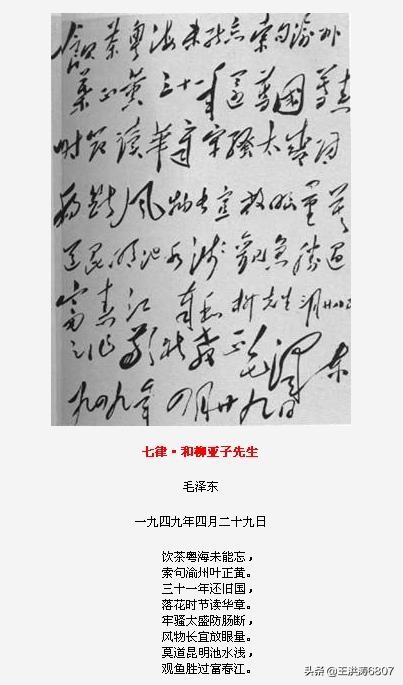 飲茶粤海未能忘索句渝州
葉正黄三十一年還舊國落花
時節讀華章牢騷太盛防
腸斷風物长宜放眼量莫
道昆明池水淺觀魚勝過
富春江 奉和柳先生
之作 教正 毛澤東
一九四九年四月廿九日
七律·和柳亚子先生
毛泽东
一九四九年四月二十九日
饮茶粤海未能忘，
索句渝州叶正黄。
三十一年还旧国，
落花时节读华章。
牢骚太盛防肠断，
风物长宜放眼量。
莫道昆明池水浅，
观鱼胜过富春江。
头条 @王洪涛6807